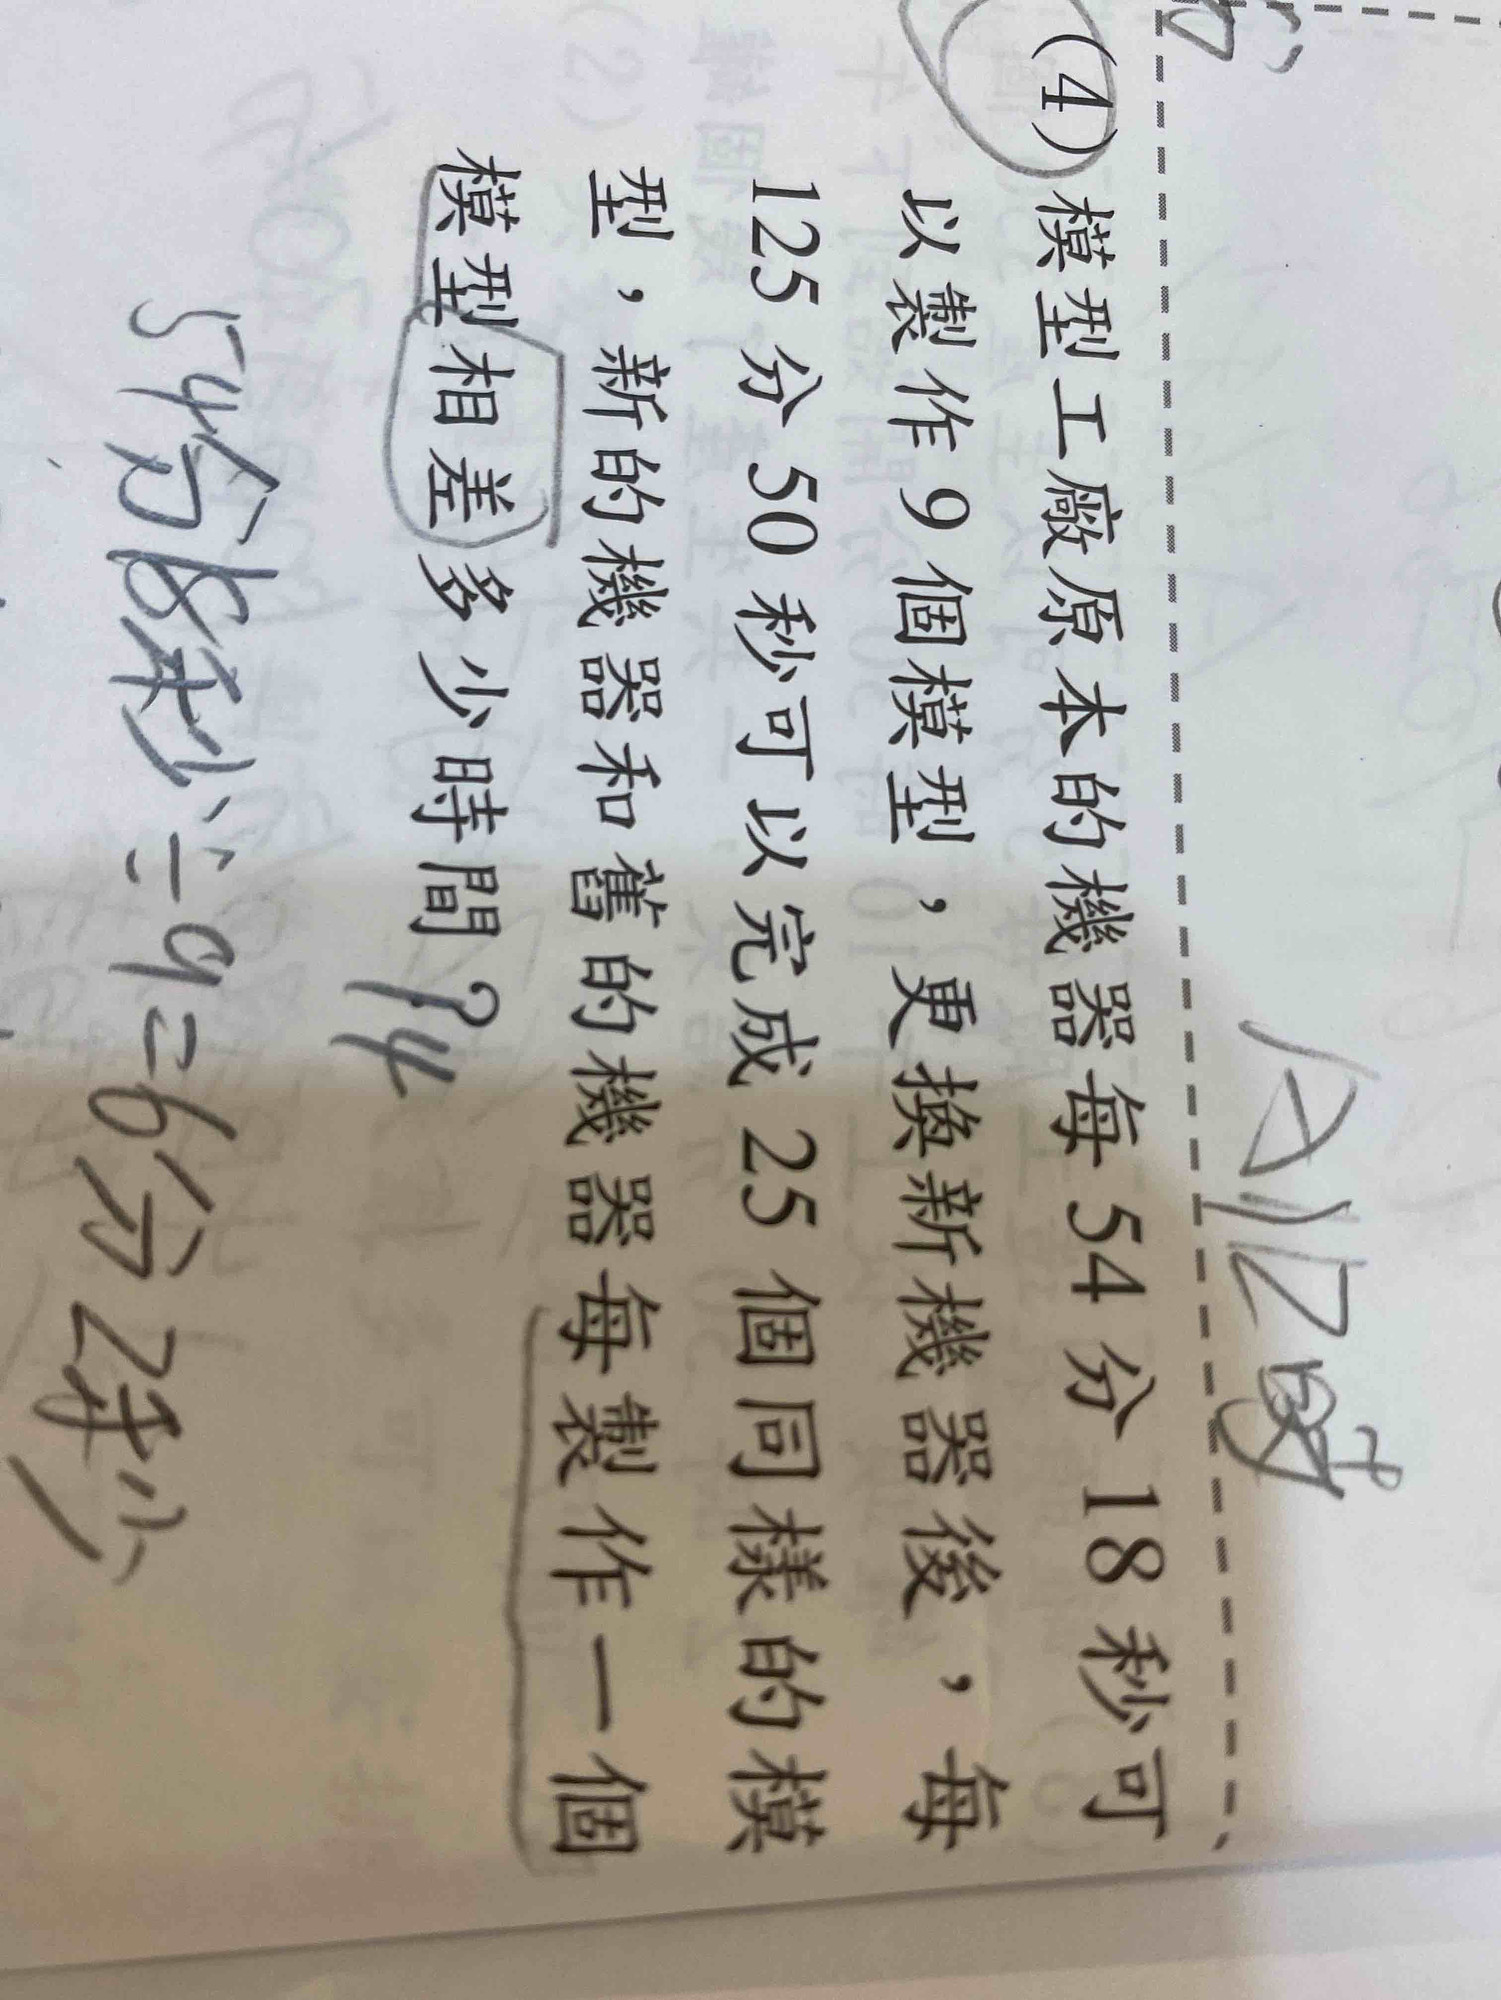 A12時
(4) 模型工廠原本的機器每 54 分 18 秒可
以製作 9 個模型，更換新機器後，每
125 分 50 秒可以完成 25 個同樣的模
型，新的機器和舊的機器每製作一個
模型相差多少時間？
54分18秒÷9=6分2秒